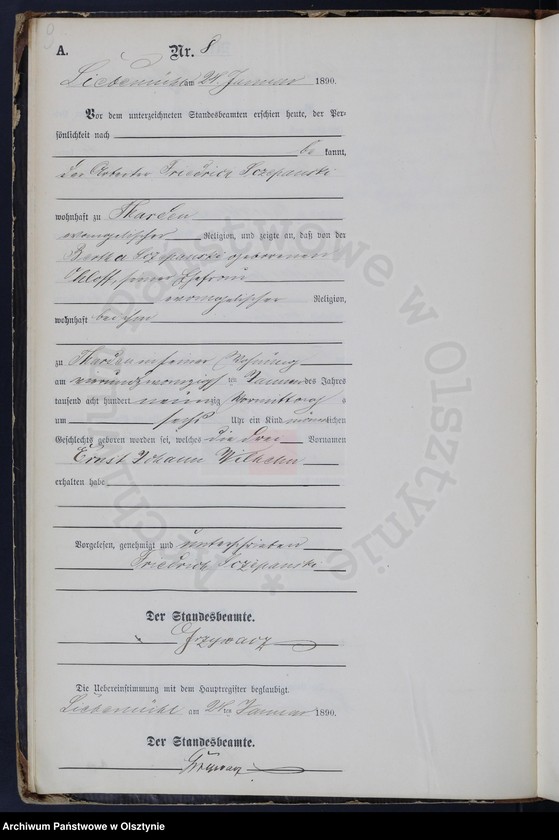 A. Nr. 8
Liebemühl am 24. Januar 1890.
Vor dem unterzeichneten Standesbeamten erschien heute, der Per-
sönlichkeit nach
be kannt,
der Arbeiter Friedrich Sczepanski
wohnhaft zu Tharden
evangelischer Religion, und zeigte an, daß von der
Bertha Sczepanski geborenen
seiner Ehefrau
evangelischer Religion,
wohnhaft bei ihm
zu Tharden in seiner Wohnung
am vierundzwanzigsten Januar des Jahres
tausend acht hundert neunzig Vormittags
um sechs Uhr ein Kind männlichen
Geschlechts geboren worden sei, welches die drei Vornamen
Ernst Johann Wilhelm
erhalten habe
Vorgelesen, genehmigt und unterschrieben
Friedrich Sczepanski
Der Standesbeamte.
Grzywacz
Die Uebereinstimmung mit dem Hauptregister beglaubigt.
Liebemühl am 24ten Januar 1890.
Der Standesbeamte.
Grzywacz
Archiwum Państwowe w Olsztynie *
Archiwum Państwowe w Olsztynie